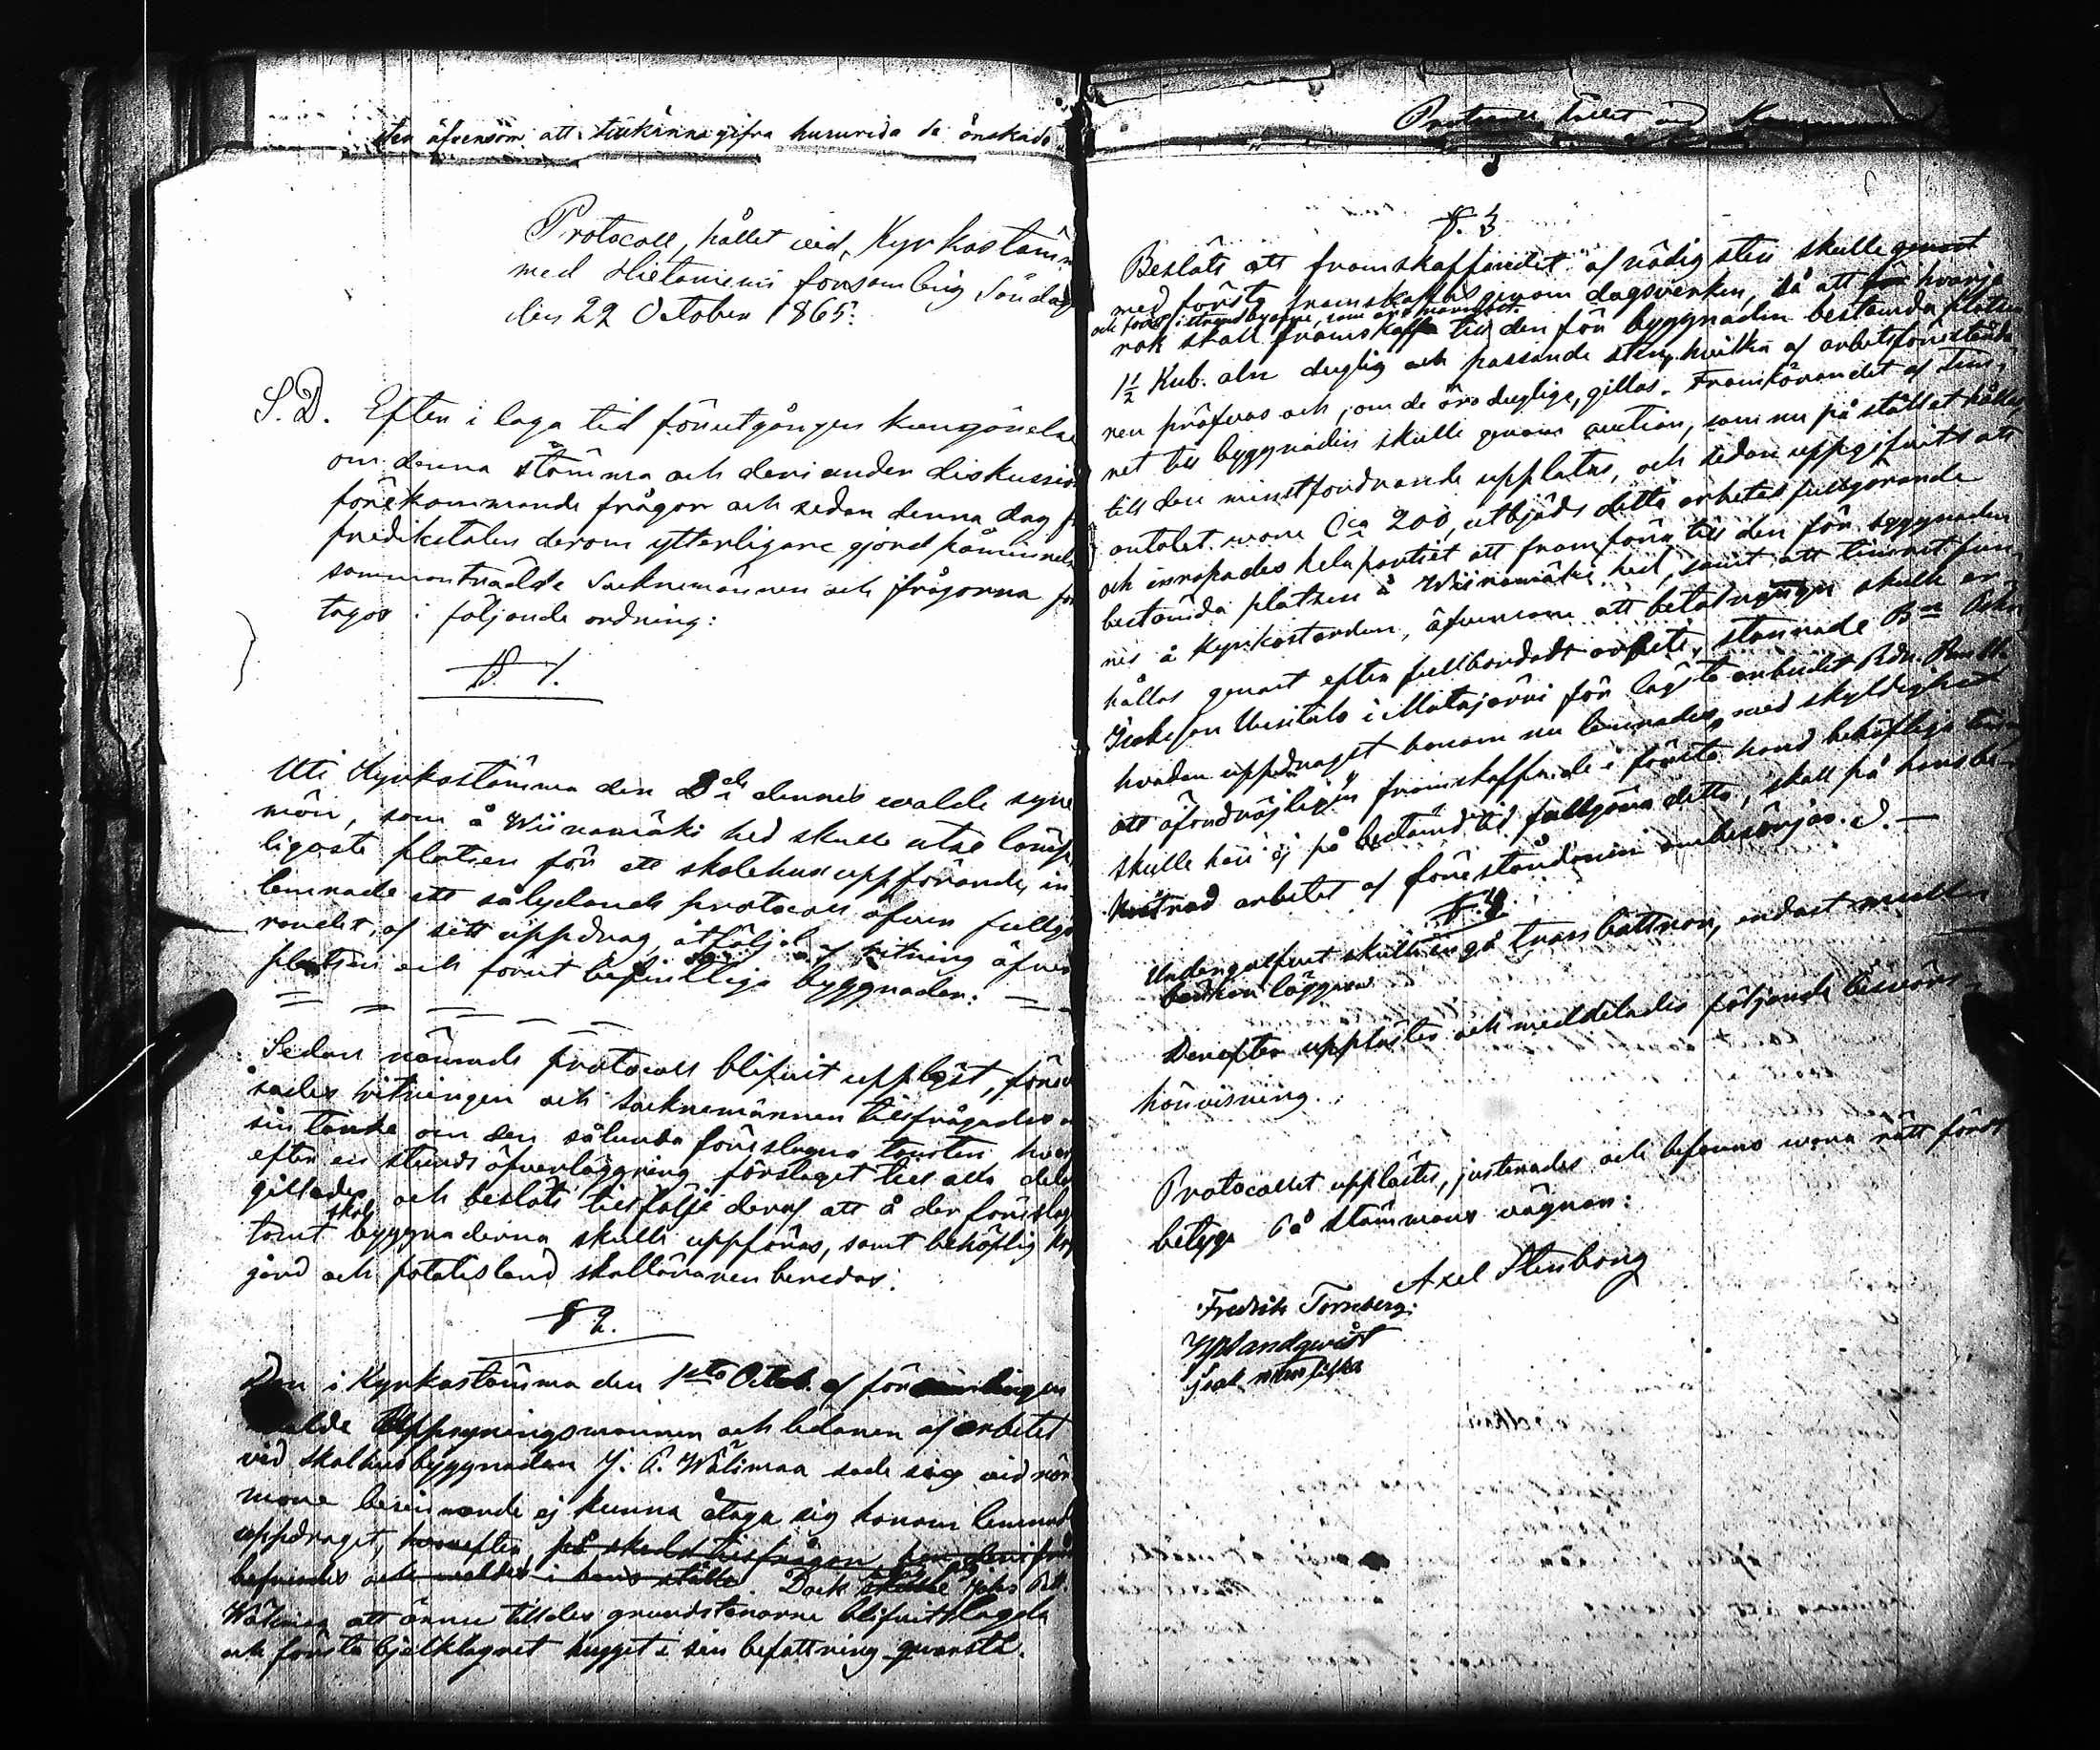 äfvensom att tillkännagifva huruvida de önskade
Protocoll, hållet vid Kyrkostäm
med Hietaniemi församling Söndag
den 22 October 1865.
S. D. Efter i laga tid förutgången kungörelse
om denna stämma och deri under diskussion
förekommande frågor och sedan denna dag
predikstolen derom ytterligare gjord påminnel
sammanträdde Socknemännen och frågorna
togos i följande ordning:
§. 1.
Uti Kyrkostämma den 8de dennes valde syne
män, som å Wiinamäki hed skulle utse lämp
ligaste platsen för ett skolehus uppförande, in
lemnade ett sålydande protocoll öfver fullgö
randet af sitt uppdrag, åtföljdt af ritning öfver
platsen och förut befintliga byggnader:
Sedan nämnde protocoll blifvit uppläst, före
sades ritningen och socknemännen tillfrågades
sin tanke om den sålunda föreslagna tomten hvar
efter en stunds öfverläggning förslaget till alla dela
gillades, och beslöts till följe deraf att å den föreslag
skol
tomt byggnaderna skulle uppföras, samt behöflig
gård och potatisland skolläraren beredas.
§ 2.
Den i Kyrkostämma den 1sta Octob. af församlingen
valde Uppsyningsmannen och ledaren af arbetet
vid skolhusbyggnaden J. P. Wälimaa sade sig vid när
mare besinnande ej kunna åtaga sig honom lemnad
uppdraget, hvarefter på skedd tillfrågan
befunnits och valdes i hans ställe. Dock skulle Johs P.
Wälimaa att ännu tilldes grundstenarne blifvit lagda
och första bjelklagret hugget i sin befattning qvarstå.
Protocoll hållet vid
§. 3
Beslöts att framskaffandet af nödig sten skulle genast
med första framskaffas genom dagsverken, så att för hvarje
och först i strandbyarne, som äro närmast
rök skall framskaffa till den för byggnaden bestämda platsen
1½ Kub. aln duglig och passande sten, hvilka af arbetsförestånda
ren pröfvas och, om de äro dugliga, gillas. Framkörandet af Tim-
ret till byggnaden skulle genom auction, som nu på stället hålles
till den minstfordrande upplåtas, och sedan uppgifvits att
antalet vore Ca 200, utbjöds detta arbetes fullgörande
och inropades hela partiet att framföra till den för byggnaden
bestämda platsen å Wiinamäki hed, samt att timret fin-
nes å Kyrkostranden, äfvensom att betalningen skulle er-
hållas genast efter fullbordadt arbete, stannade Bn
Isaksson Uusitalo i Matojärvi för lägsta anbudet Rdr. Rmt
hvaden uppdraget honom nu lemnades med skyldighet
att ofördröjligen framskaffande i första hand behöfliga
skulle han ej på bestämd tid fullgöra detta, skall på hans be-
kostnad arbetet af föreståndaren ombesörjas. d. —
§. 4.
Undergolfvet skulle ingå tvars bottnar, endast mellan
bänkar läggas
Derefter upplästes och meddelades följande besvärs-
hänvisning.
Protocollet upplästes, justerades och befanns vara rätt fördt
betyga På stämmans vägnar:
Axel Stenborg
Fredrik Tornberg.
Isak